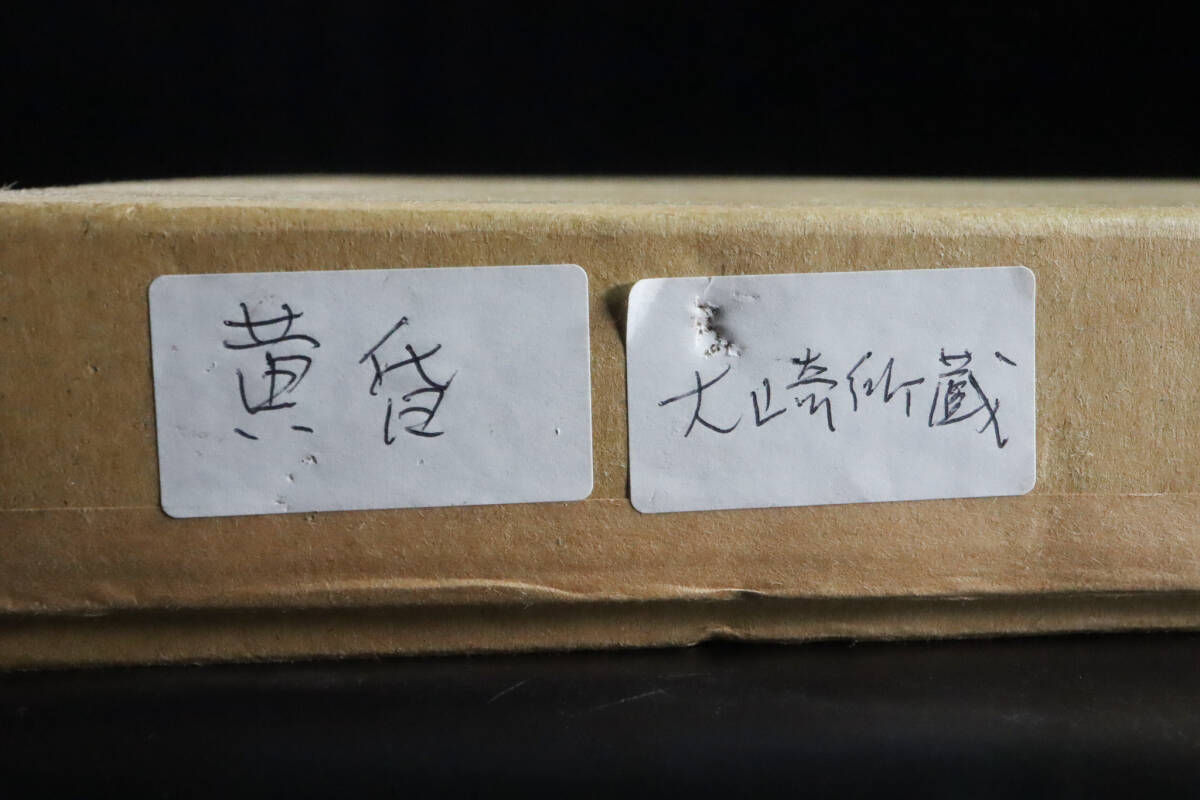 黄昏
大崎所蔵